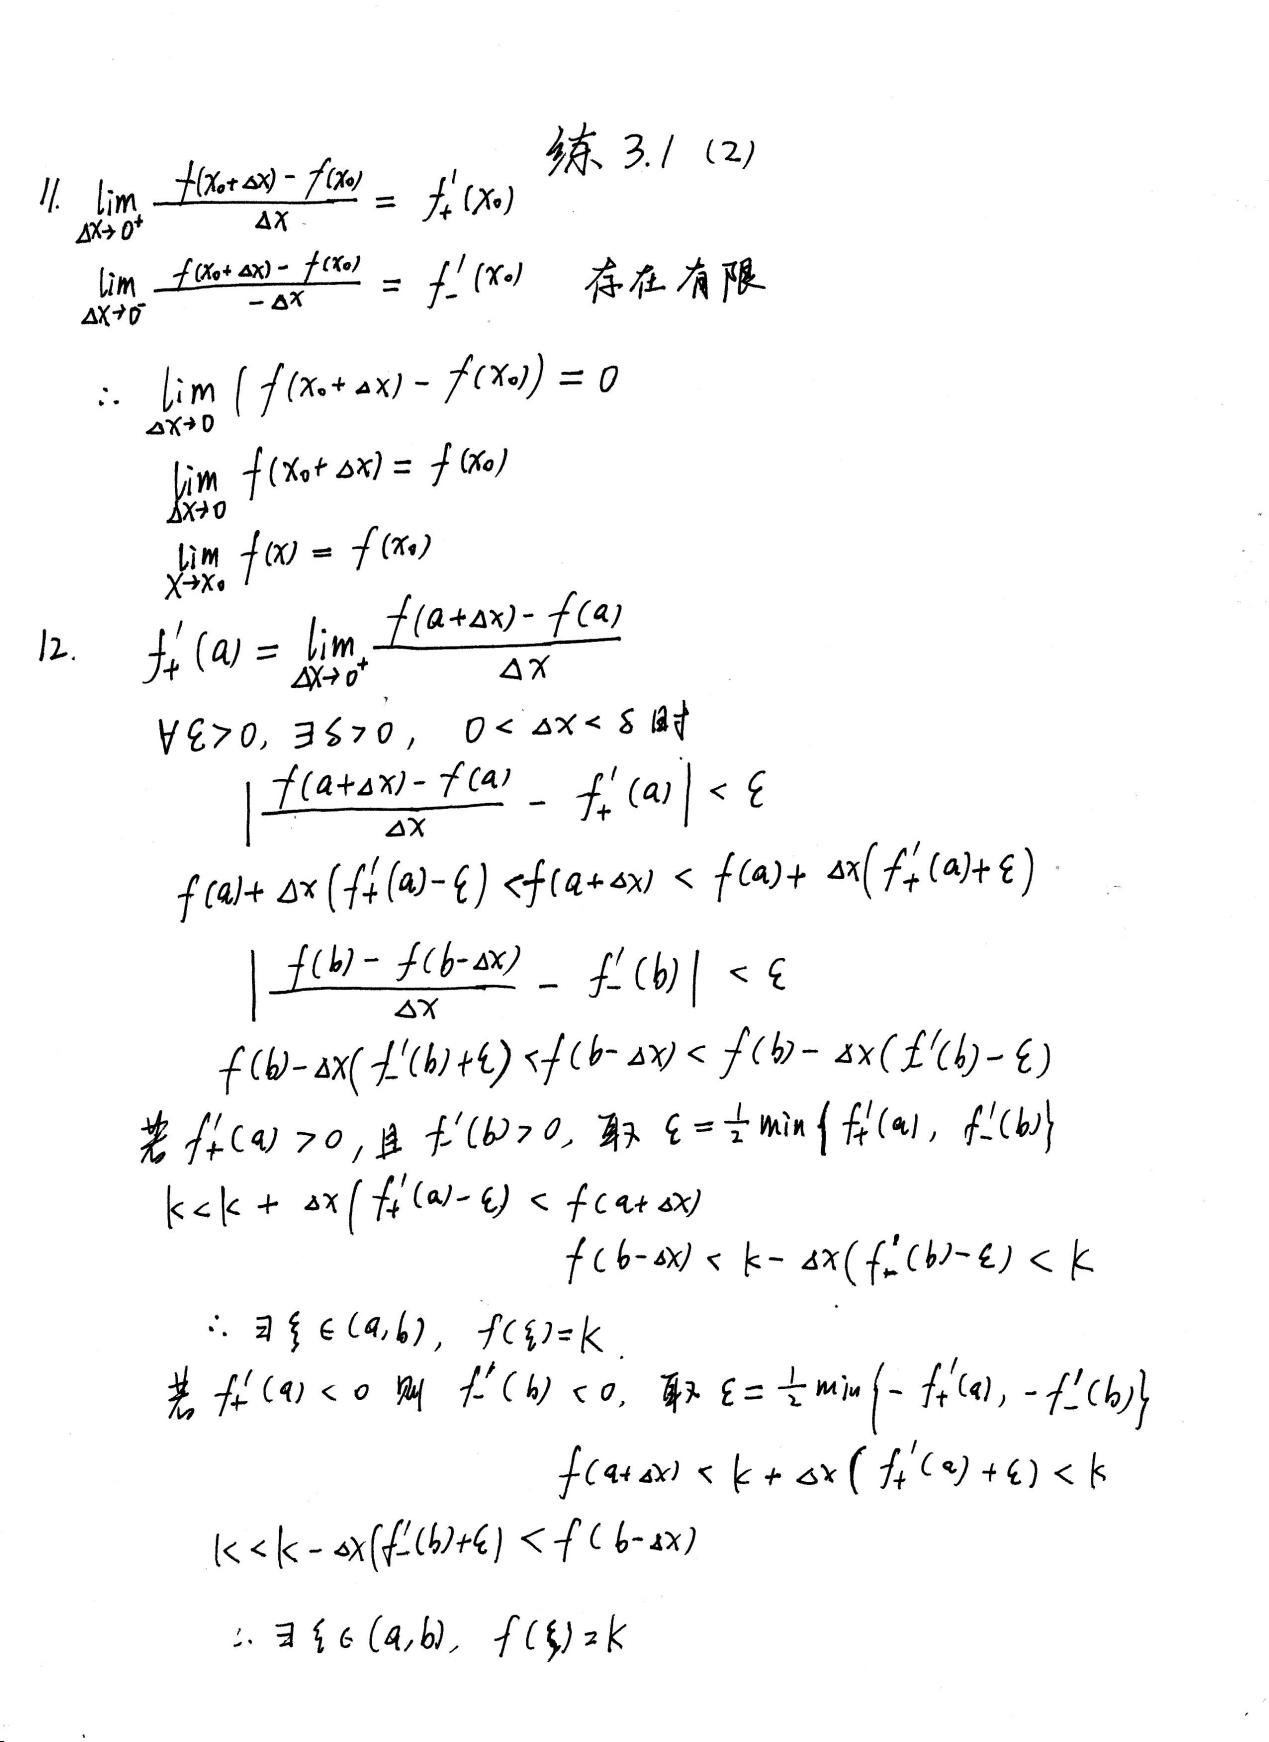 练 3.1 (2)
11. lim_{Δx→0⁺} (f(x₀+Δx) - f(x₀))/Δx = f₊'(x₀)
lim_{Δx→0⁻} (f(x₀+Δx) - f(x₀))/(-Δx) = f₋'(x₀) 存在有限
∴ lim_{Δx→0} (f(x₀+Δx) - f(x₀)) = 0
lim_{Δx→0} f(x₀+Δx) = f(x₀)
lim_{x→x₀} f(x) = f(x₀)
12. f₊'(a) = lim_{Δx→0⁺} (f(a+Δx) - f(a))/Δx
∀ε>0, ∃δ>0, 0<Δx<δ时
|(f(a+Δx) - f(a))/Δx - f₊'(a)| < ε
f(a)+Δx(f₊'(a)-ε) < f(a+Δx) < f(a)+Δx(f₊'(a)+ε)
|(f(b) - f(b-Δx))/Δx - f₋'(b)| < ε
f(b)-Δx(f₋'(b)+ε) < f(b-Δx) < f(b)-Δx(f₋'(b)-ε)
若 f₊'(a)>0, 且 f₋'(b)>0, 取 ε=½min{f₊'(a), f₋'(b)}
k<k+Δx(f₊'(a)-ε) < f(a+Δx)
f(b-Δx) < k-Δx(f₋'(b)-ε) < k
∴ ∃ξ∈(a,b), f(ξ)=k.
若 f₊'(a)<0 则 f₋'(b)<0, 取 ε=½min{-f₊'(a), -f₋'(b)}
f(a+Δx) < k+Δx(f₊'(a)+ε) < k
k<k-Δx(f₋'(b)+ε) < f(b-Δx)
∴ ∃ξ∈(a,b), f(ξ)=k